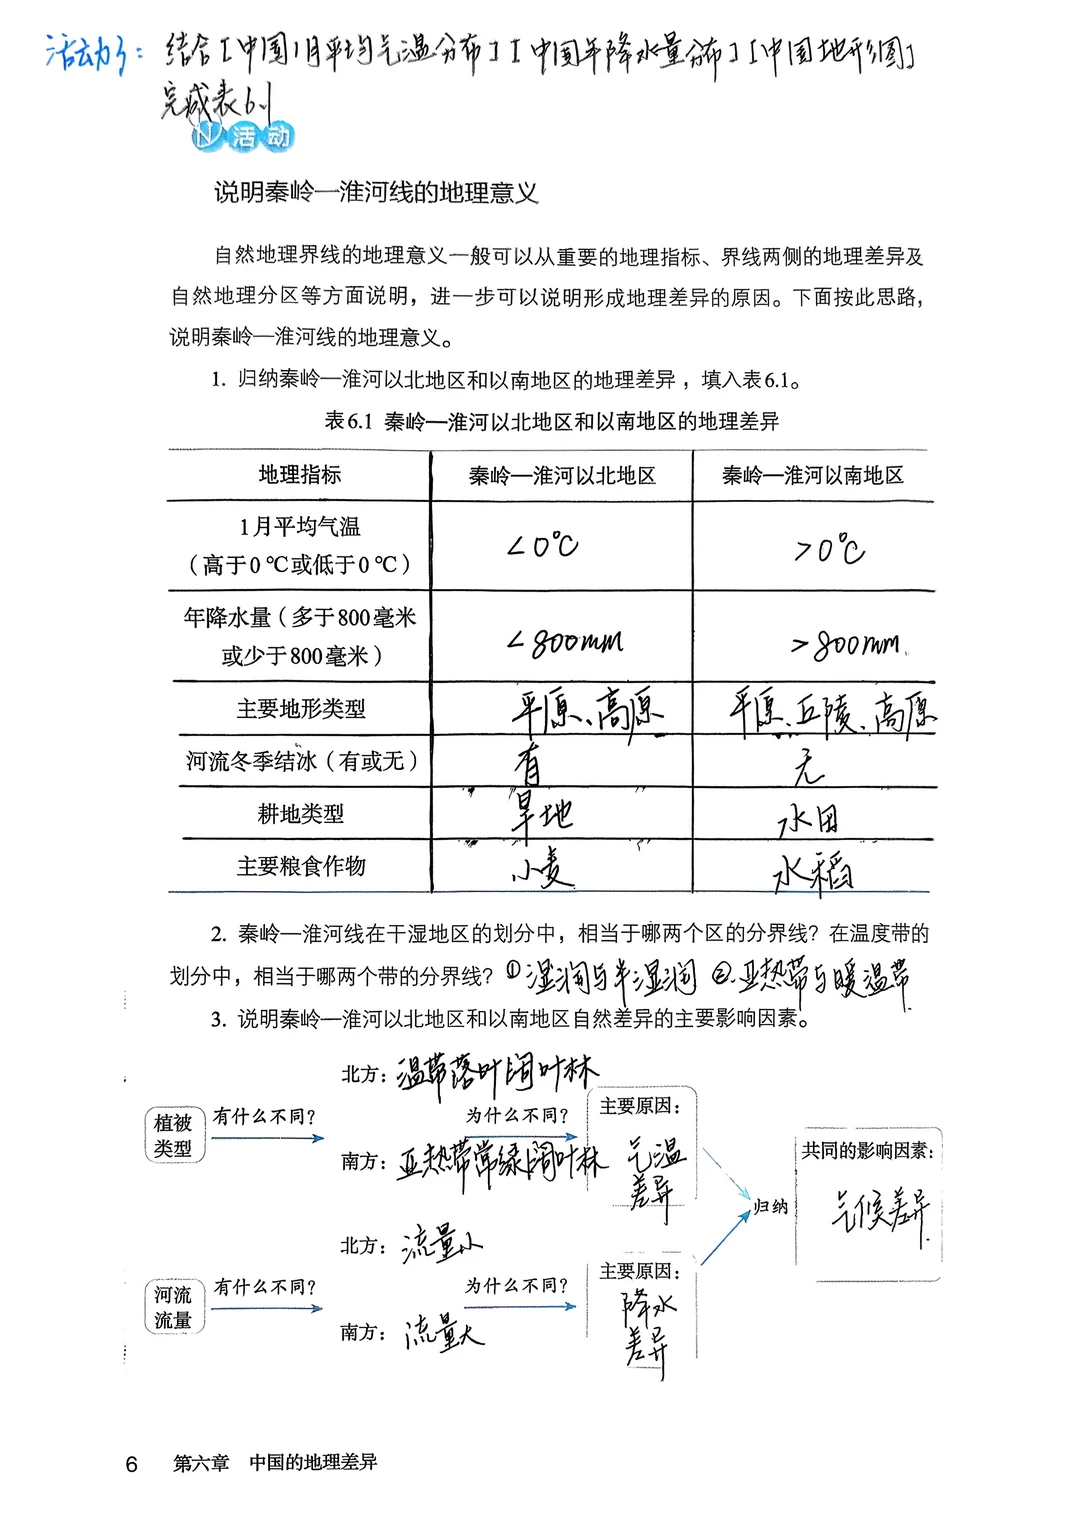 活动3：结合[中国1月平均气温分布][中国年降水量分布][中国地形图]
完成表6.1
活动
说明秦岭—淮河线的地理意义
自然地理界线的地理意义一般可以从重要的地理指标、界线两侧的地理差异及
自然地理分区等方面说明，进一步可以说明形成地理差异的原因。下面按此思路，
说明秦岭—淮河线的地理意义。
1. 归纳秦岭—淮河以北地区和以南地区的地理差异，填入表6.1。
表6.1 秦岭—淮河以北地区和以南地区的地理差异
地理指标 秦岭—淮河以北地区 秦岭—淮河以南地区
1月平均气温
（高于0 ℃或低于0 ℃） <0℃ >0℃
年降水量（多于800毫米
或少于800毫米） <800mm >800mm.
主要地形类型 平原、高原 平原、丘陵、高原
河流冬季结冰（有或无） 有 无
耕地类型 旱地 水田
主要粮食作物 小麦 水稻
2. 秦岭—淮河线在干湿地区的划分中，相当于哪两个区的分界线？在温度带的
划分中，相当于哪两个带的分界线？①湿润与半湿润 ②.亚热带与暖温带.
3. 说明秦岭—淮河以北地区和以南地区自然差异的主要影响因素。
北方：温带落叶阔叶林
植被
类型
有什么不同？
为什么不同？
南方：亚热带常绿阔叶林
主要原因：
气温
差异
北方：流量小
河流
流量
有什么不同？
为什么不同？
南方：流量大
主要原因：
降水
差异
归纳
共同的影响因素：
气候差异.
6 第六章 中国的地理差异